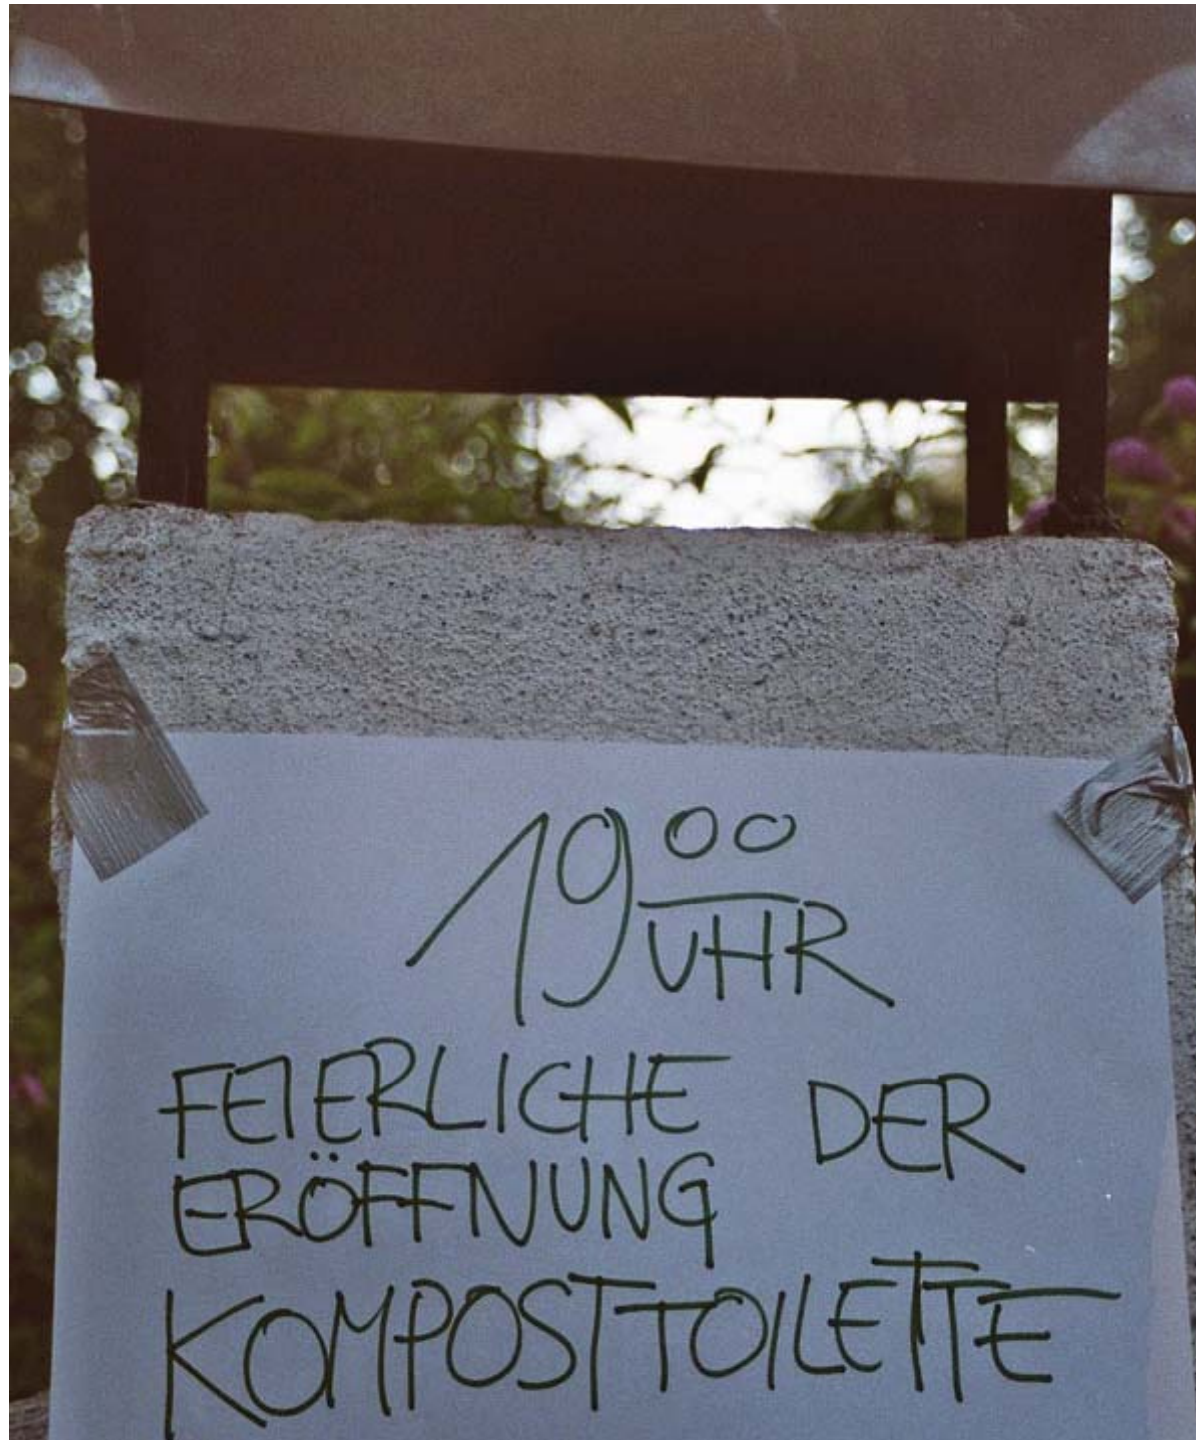 19 00 UHR
FEIERLICHE DER
ERÖFFNUNG
KOMPOSTTOILETTE